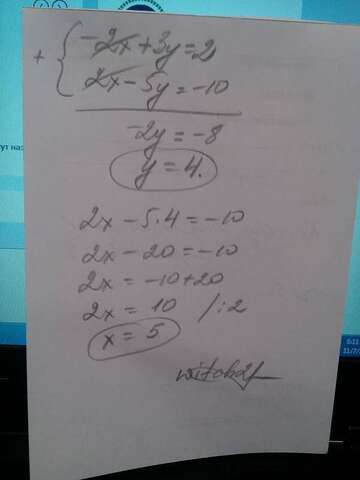 + { -2x + 3y = 2
2x - 5y = -10
-2y = -8
y = 4.
2x - 5·4 = -10
2x - 20 = -10
2x = -10 + 20
2x = 10 /:2
x = 5